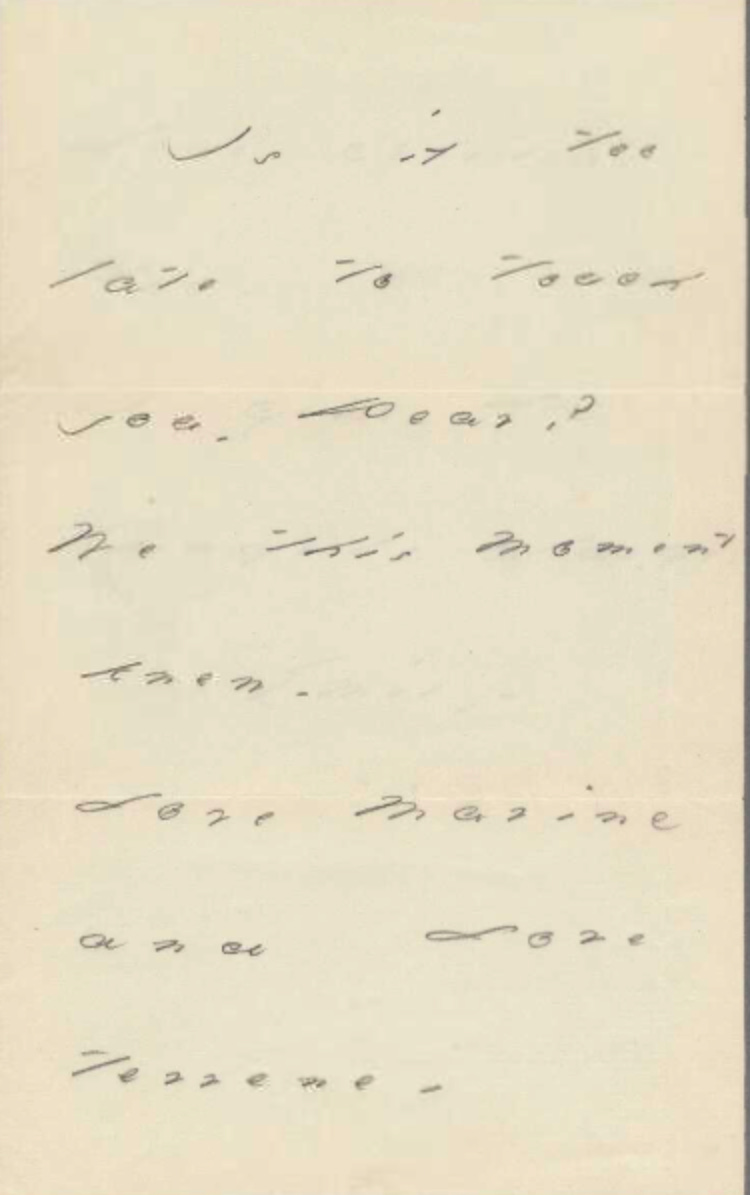 Is it too
late to touch
you, Dear?
We this moment
knew -
Love Marine
and Love
Terrene -